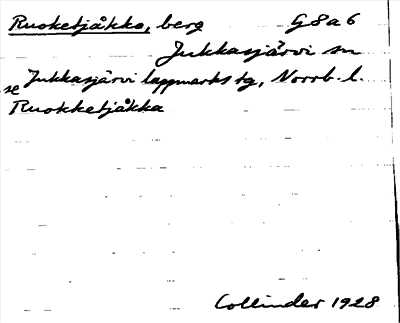 Ruoketjåkko, berg G8a6
Jukkasjärvi sn
Jukkasjärvi lappmarks tg, Norrb. l.
se Ruokketjåkka
Collinder 1928